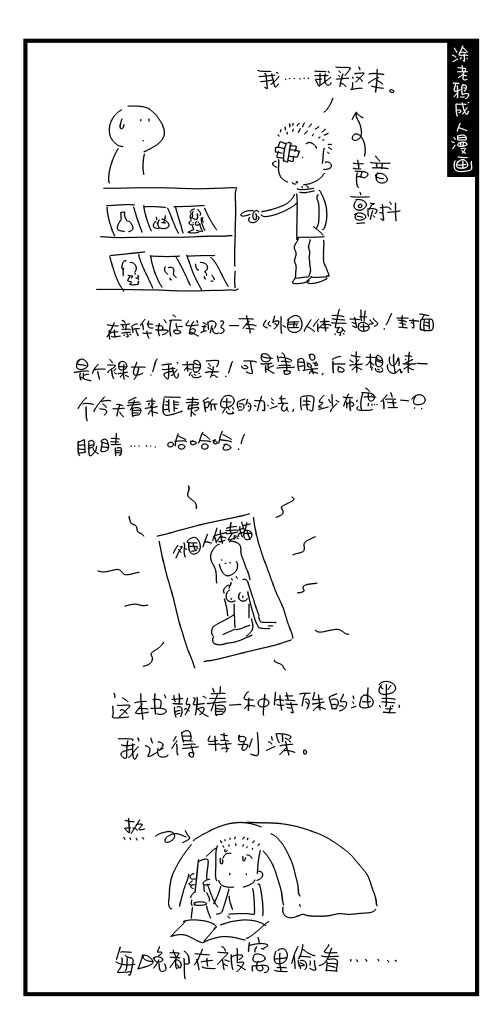 涂老鸦成人漫画
我……我买这本。
声音
颤抖
在新华书店发现了一本《外国人体素描》!封面
是个裸女!我想买!可是害臊,后来想出来一
个今天看来匪夷所思的办法,用纱布遮住一只
眼睛……哈哈哈!
外国人体素描
这本书散发着一种特殊的油墨.
我记得特别深。
热
每晚都在被窝里偷看……